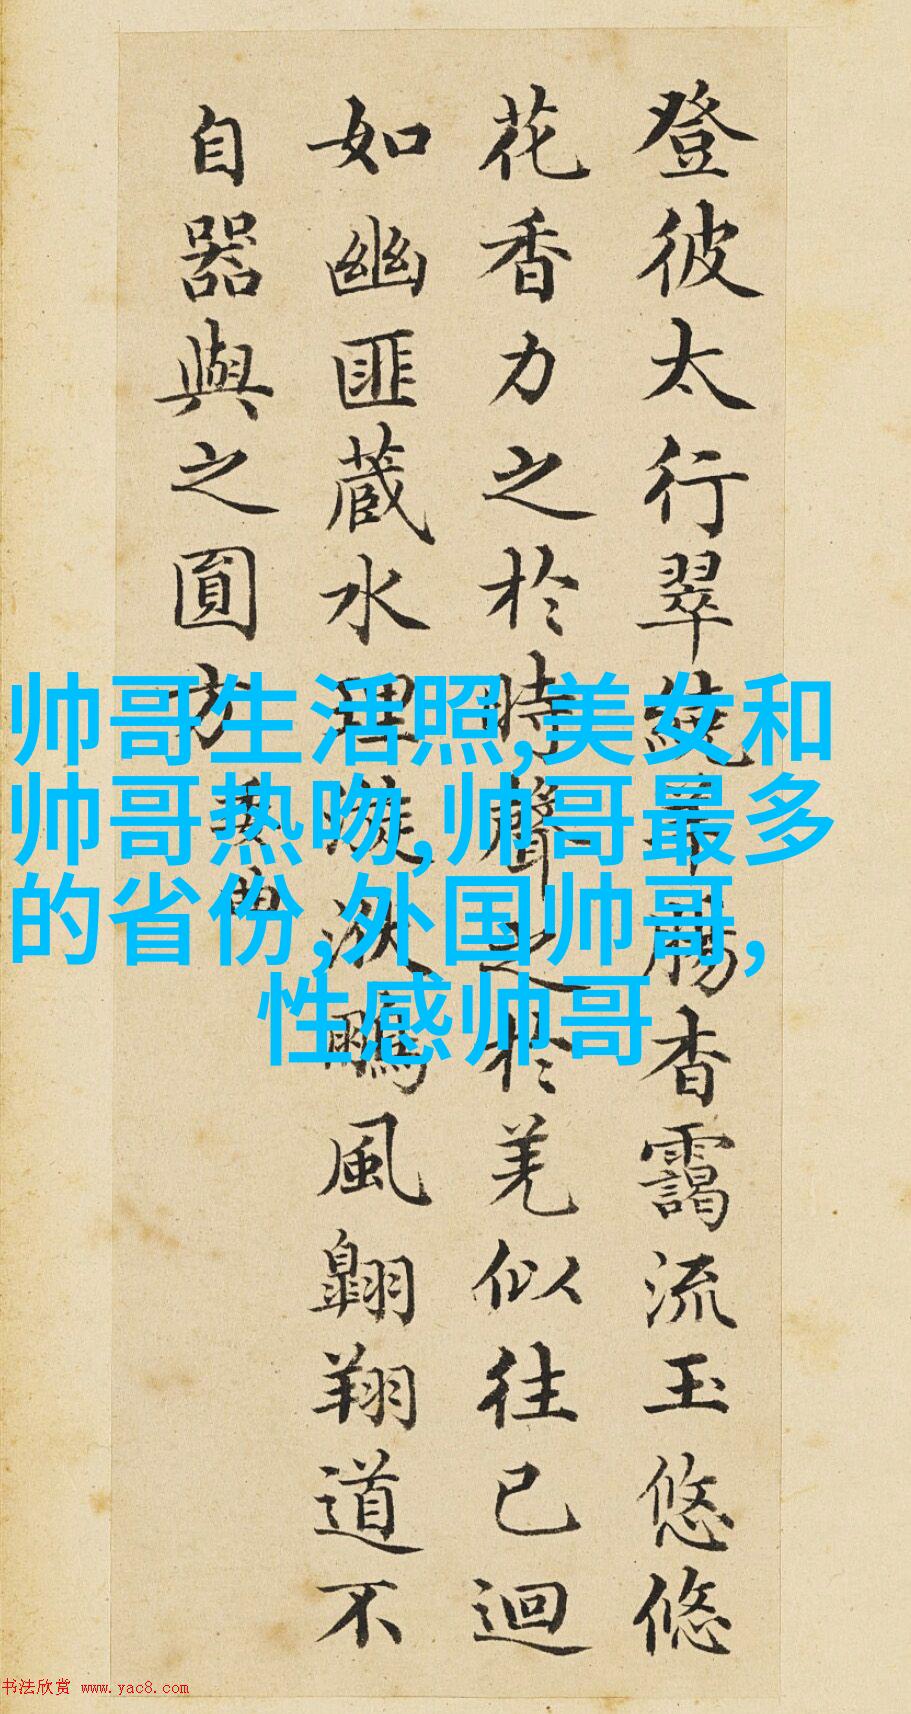 登彼太行翠繞羊腸杳靄流玉悠悠
花香力之於時聲之於羌似往已迴
如幽匪藏水理漩洑鵬風翺翔道不
自器與之圓方 委曲
帅哥生活照,美女和
帅哥热吻,帅哥最多
的省份,外国帅哥,
性感帅哥
书法欣赏 www.yac8.com